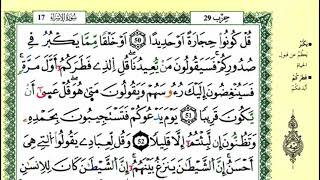 17 سُورَةُ الإِسْرَاءِ حِزْب 29
قُلْ كُونُوا۟ حِجَارَةً أَوْ حَدِيدًا 50 أَوْ خَلْقًا مِّمَّا يَكْبُرُ فِى
صُدُورِكُمْ فَسَيَقُولُونَ مَن يُعِيدُنَا قُلِ ٱلَّذِى فَطَرَكُمْ أَوَّلَ مَرَّةٍ
فَسَيُنْغِضُونَ إِلَيْكَ رُءُوسَهُمْ وَيَقُولُونَ مَتَىٰ هُوَ قُلْ عَسَىٰ أَن
يَكُونَ قَرِيبًا 51 يَوْمَ يَدْعُوكُمْ فَتَسْتَجِيبُونَ بِحَمْدِهِۦ
وَتَظُنُّونَ إِن لَّبِثْتُمْ إِلَّا قَلِيلًا 52 وَقُل لِّعِبَادِى يَقُولُوا۟ ٱلَّتِى هِىَ
أَحْسَنُ إِنَّ ٱلشَّيْطَٰنَ يَنزَغُ بَيْنَهُمْ إِنَّ ٱلشَّيْطَٰنَ كَانَ لِلْإِنسَٰنِ
يَكْبُرُ
يعظم عن قبول
الحياة
فَطَرَكُمْ
أبدعكم